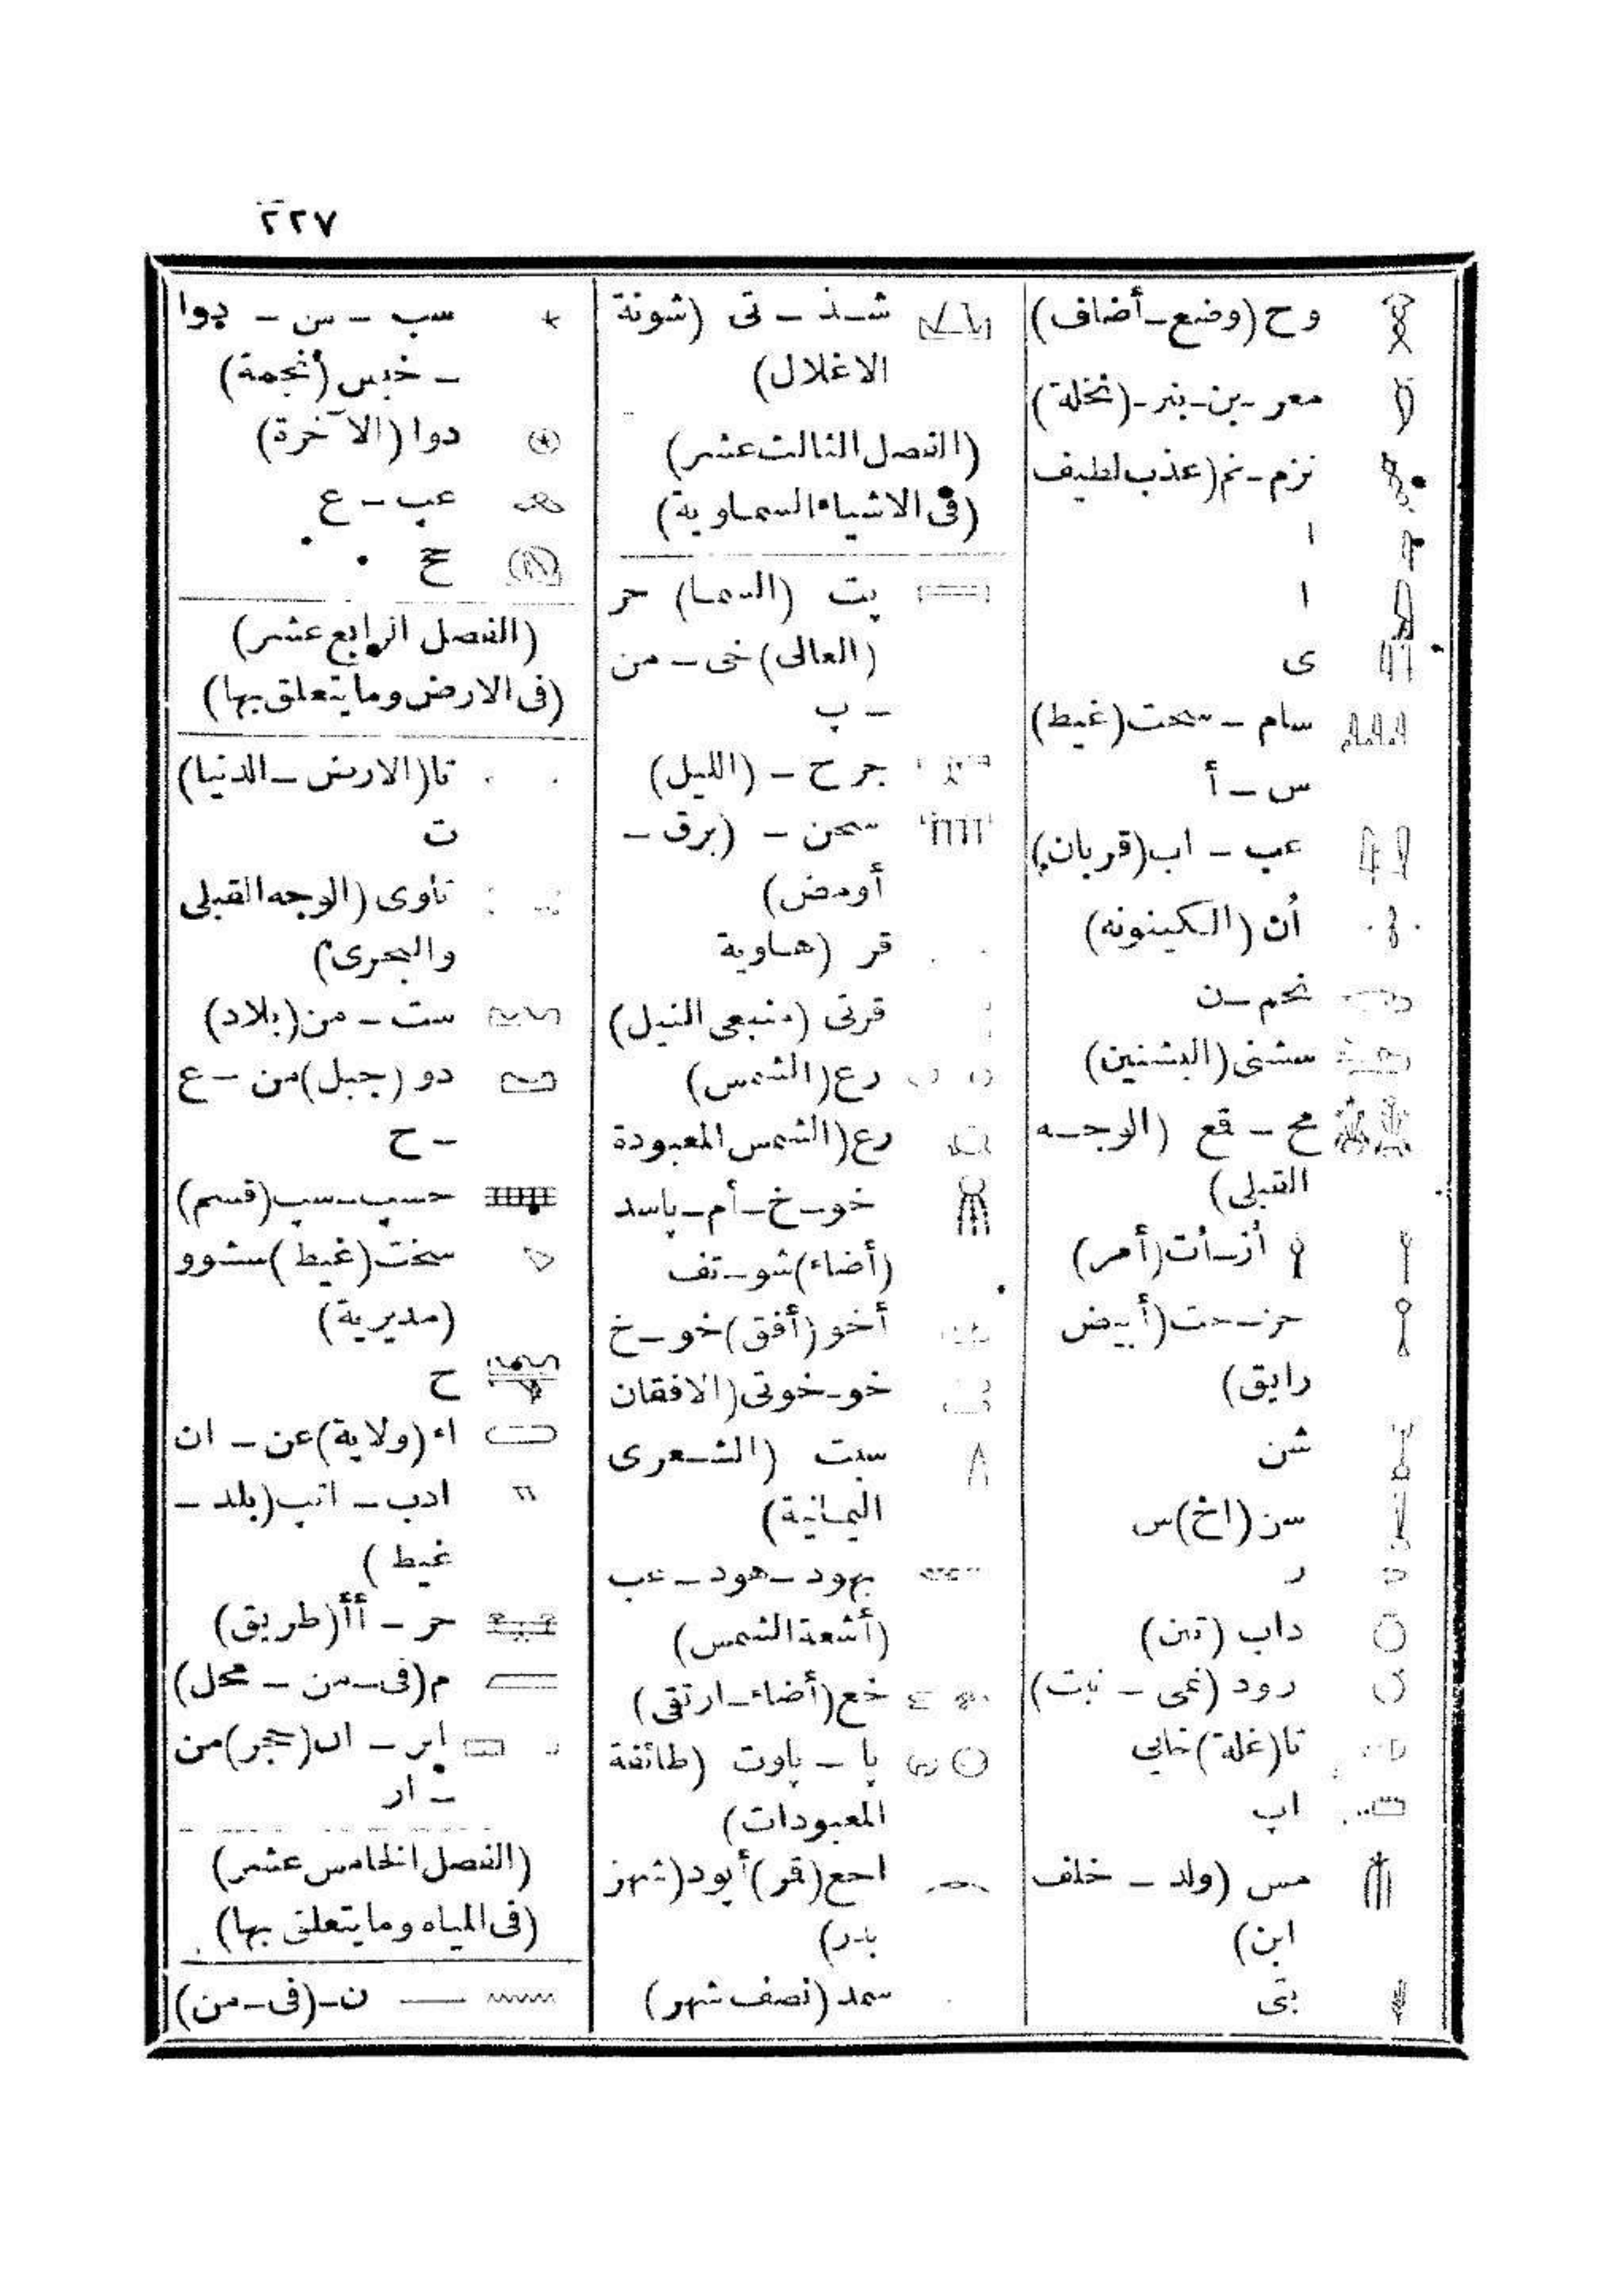 ٢٢٧
وح (وضع-أضاف)
معر -بن-بنر-(نخلة)
نزم-نم(عذب لطيف
ا
ا
ى
سام - سحت(غيط)
س - أ
عب - اب(قربان)
أن (الكينونه)
نحم-ن
سشنى (البشنين)
مح - قع (الوجه
القبلى)
أز-أت(أمر)
حز-حت(أبيض
رايق)
شن
سن (اخ)س
ر
داب (تين)
رود (نمى - نبت)
تا(غلة)خابى
اب
مس (ولد - خلف
ابن)
بتى
شنـ - تى (شونة
الاغلال)
(الفصل الثالث عشر)
(فى الاشياء السماوية)
پت (السما) حر
(العالى)خى - من
- پ
جرح - (الليل)
سحن - (برق -
أومض)
قر (هاوية
قرتى (منبعى النيل)
رع(الشمس)
رع(الشمس المعبودة
خو-خ-أم-ياسد
(أضاء)شو-تف
أخو(أفق)خو-خ
خو-خوتى(الافقان
سبت (الشعرى
اليمانية)
بهود-هود-عب
(أشعة الشمس)
خع(أضاء-ارتقى)
پا - پاوت (طائفة
المعبودات)
احع(قر)أبود(شهر
بدر)
سمد(نصف شهر)
سب - س - دوا
- خبس(أنجمة)
دوا(الآخرة)
عب - ع
خ
(الفصل الرابع عشر)
(فى الارض وما يتعلق بها)
تا(الارض-الدنيا)
ت
تاوى(الوجه القبلى
والبحرى)
ست - من(بلاد)
دو(جبل)من-ع
- ح
حسب-سب(قسم)
سخت(غيط)سشوو
(مديرية)
ح
اء(ولاية)عن - ان
ادب - اتب(بلد -
غيط)
حر - أأ(طريق)
م(فى-من - محل)
ابر - ان(حجر)من
- ار
(الفصل الخامس عشر)
(فى المياه وما يتعلق بها)
ن-(فى-من)